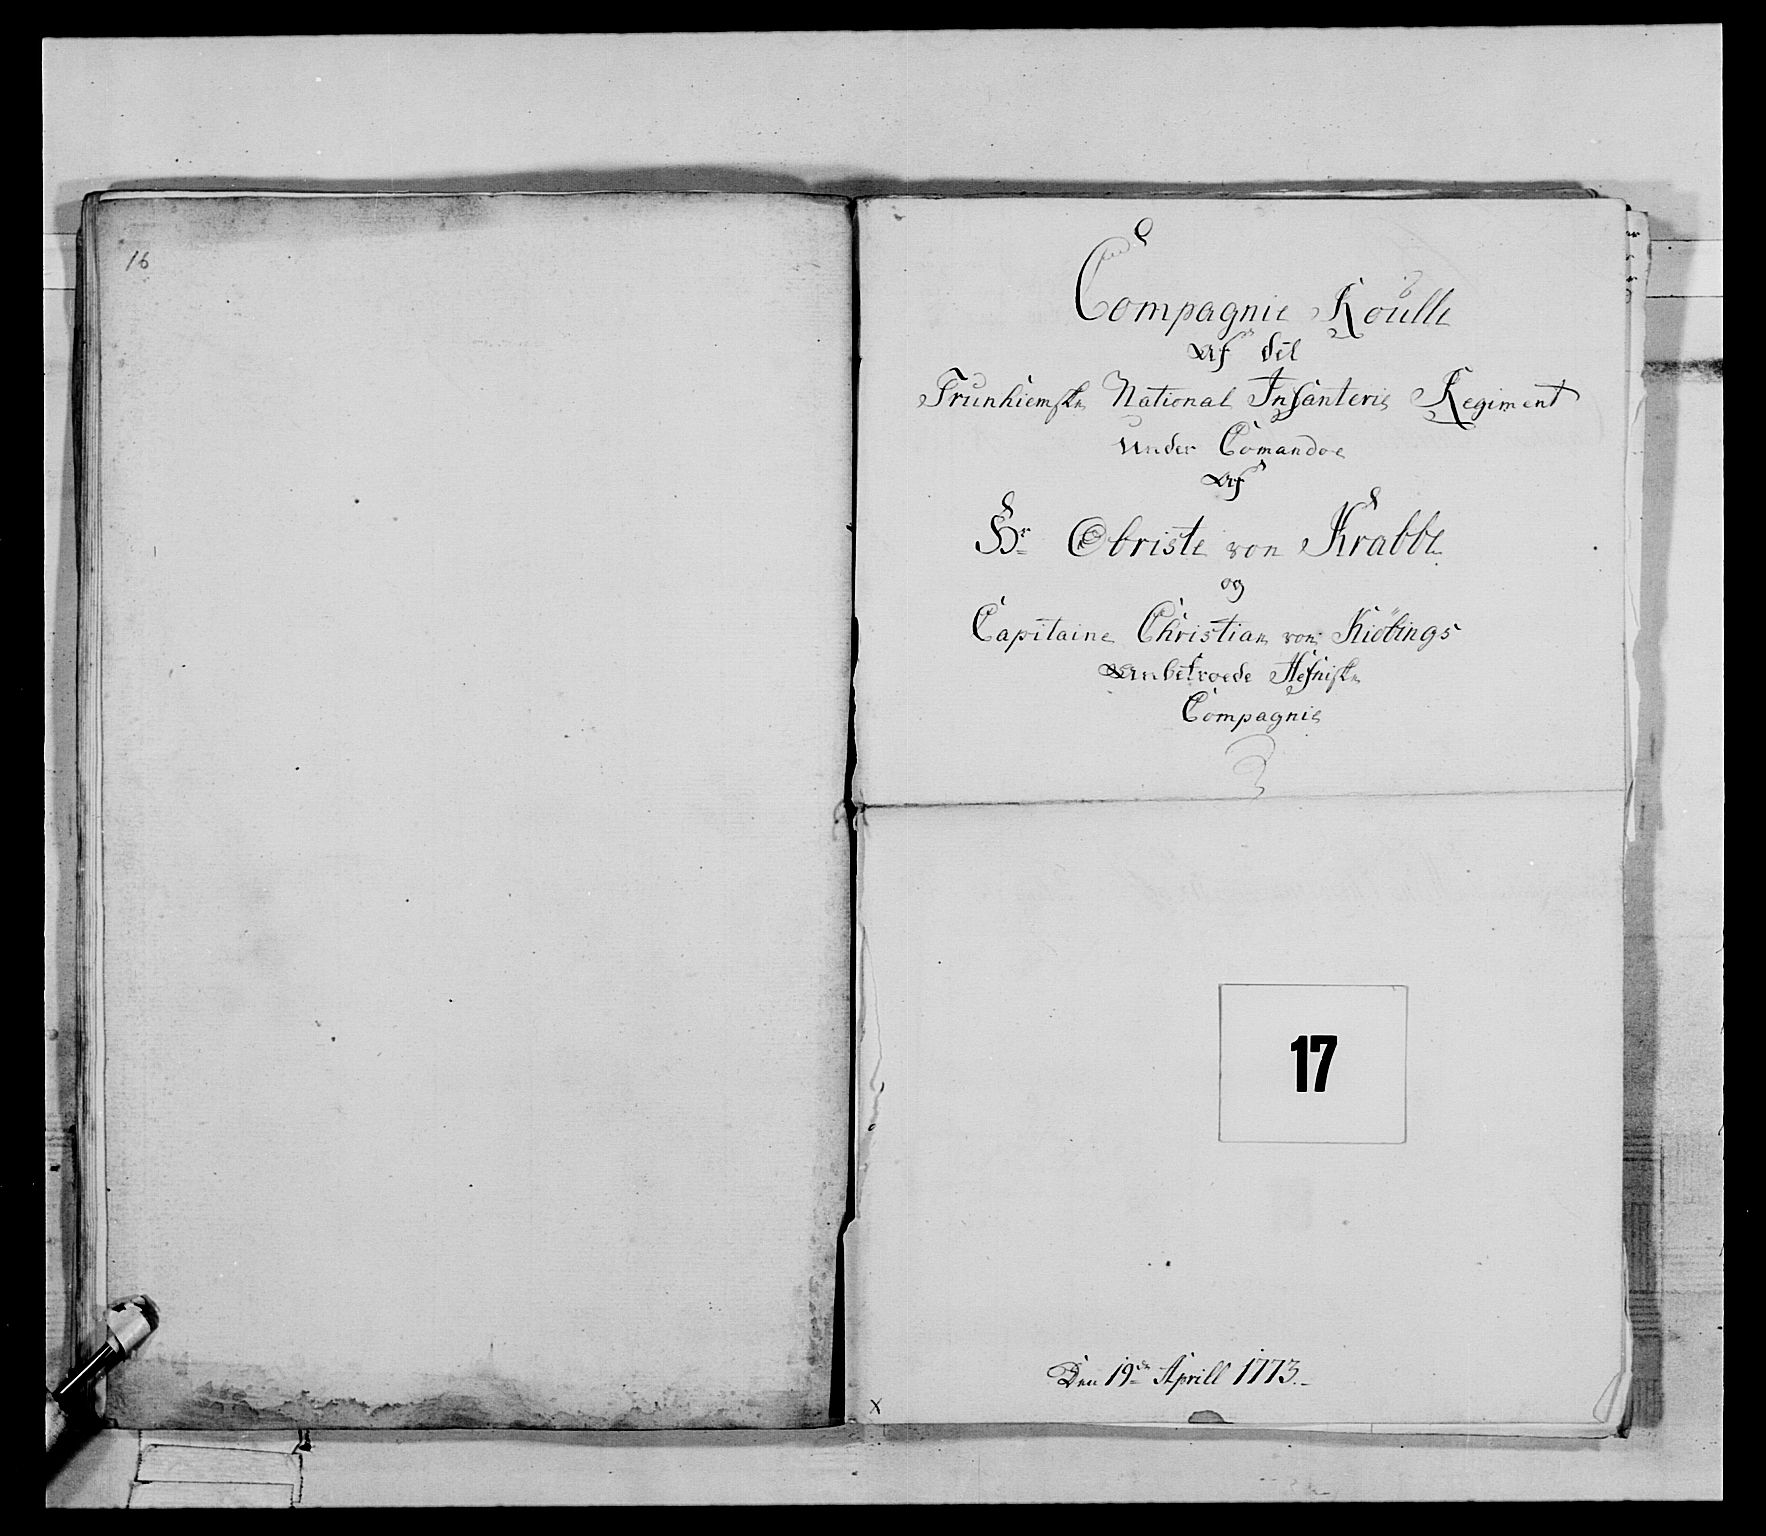 16
Compagnie Roulle
Af det
Trunhiemske National Infanterie Regiment
under Comandoe
Af
Hr Obriste von Krabbe
og
Capitaine Christian von Kiöbings
Anbetroede Hefniske
Compagnie
17
Den 19de Aprill 1773.
x